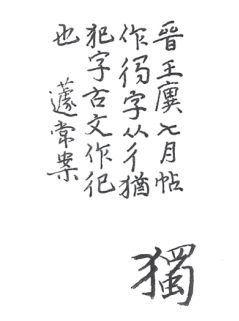 晋王廙七月帖
作㹱字从彳猶
犯字古文作𢓉
也　蘧常案
獨